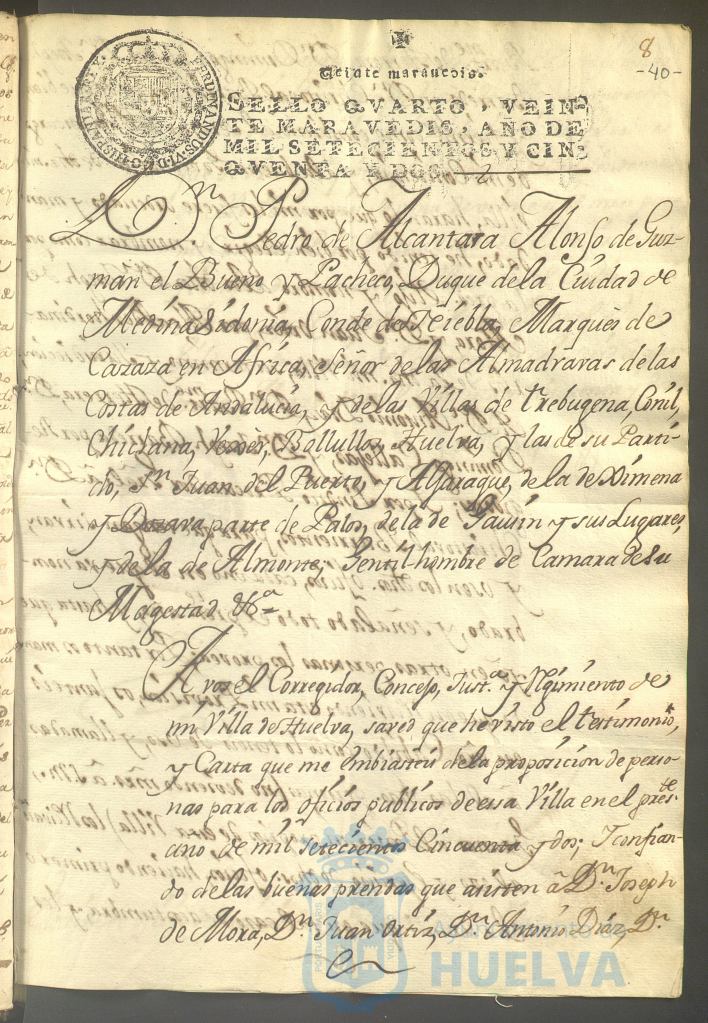 8
-40-
FERDINANDUS VI D G HISPANIAR REX
Veinte maravedis.
SELLO QVARTO, VEIN
TE MARAVEDIS, AÑO DE
MIL SETECIENTOS Y CIN
QVENTA Y DOS
Dn. Pedro de Alcantara Alonso de Guz-
man el Bueno y Pacheco, Duque de la Ciudad de
Medina Sidonia, Conde de Niebla, Marquès de
Cazaza en Africa, Señor de las Almadravas de las
Costas de Andalucia, y de las Villas de trebugena, Conil,
Chiclana, Bollullos, Huelva, y las de su Parti-
do, Sn. Juan del Puerto, y Alfaraque, de la de Ximena
y parte de Palos, de la de Gausin y sus Lugares,
y de la de Almonte, Gentilhombre de Camara de Su
Magestad &a.
A vos el Corregidor, Concejo, Justa. y Rgimiento de
mi Villa de Huelva, saved que he visto el testimonio,
y Carta que me embiasteis de la proposicion de perso-
nas para los oficios publicos de esa Villa en el preste.
año de mil setecientos Cincuenta y dos; Y confian-
do de las buenas prendas que asisten â Dn. Joseph
de Mora, Dn. Juan Ortiz, Dn. Antonio Diaz, Dn.
HUELVA